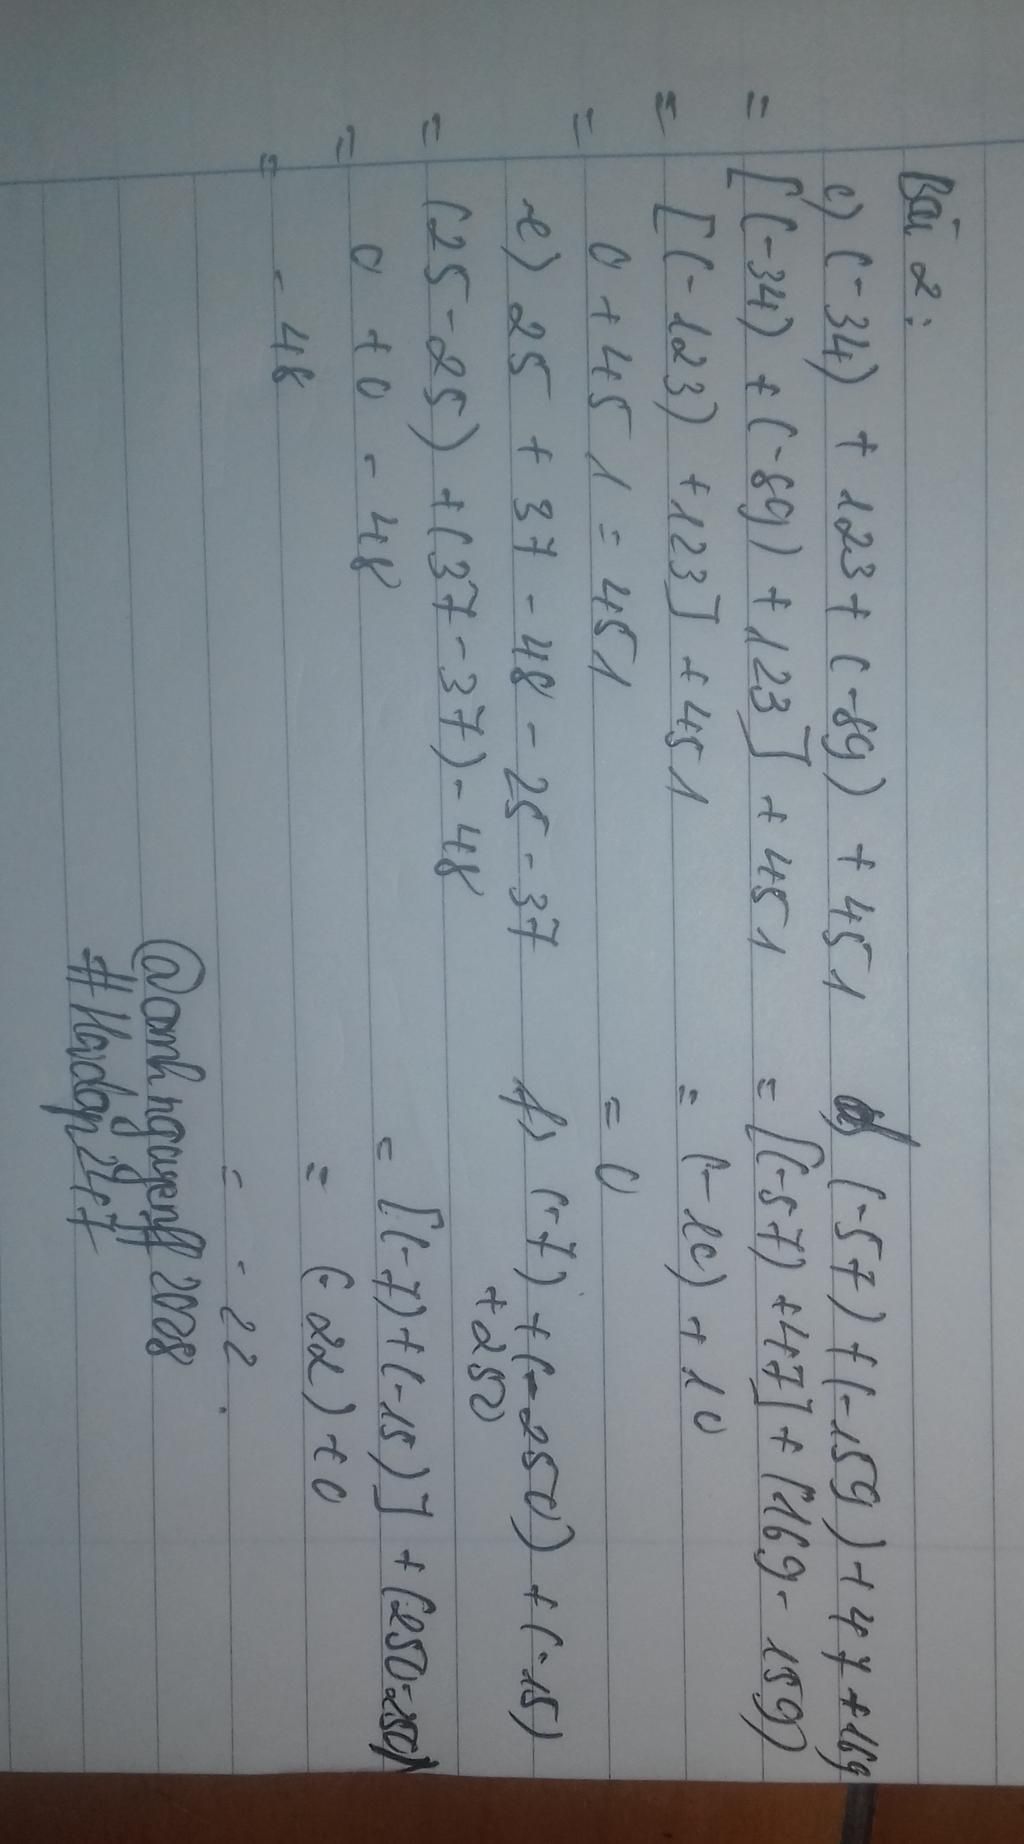 Bài 2:
c) (-34) + 123 + (-89) + 451
= [(-34) + (-89) + 123] + 451
= [(-123) + 123] + 451
= 0 + 451 = 451
d) (-57) + (-159) + 47 + 169
= [(-57) + 47] + (169 - 159)
= (-10) + 10
= 0
e) 25 + 37 - 48 - 25 - 37
= (25 - 25) + (37 - 37) - 48
= 0 + 0 - 48
= - 48
f) (-7) + (-250) + (-15)
+ 250
= [(-7) + (-15)] + (250-250)
= (-22) + 0
= - 22.